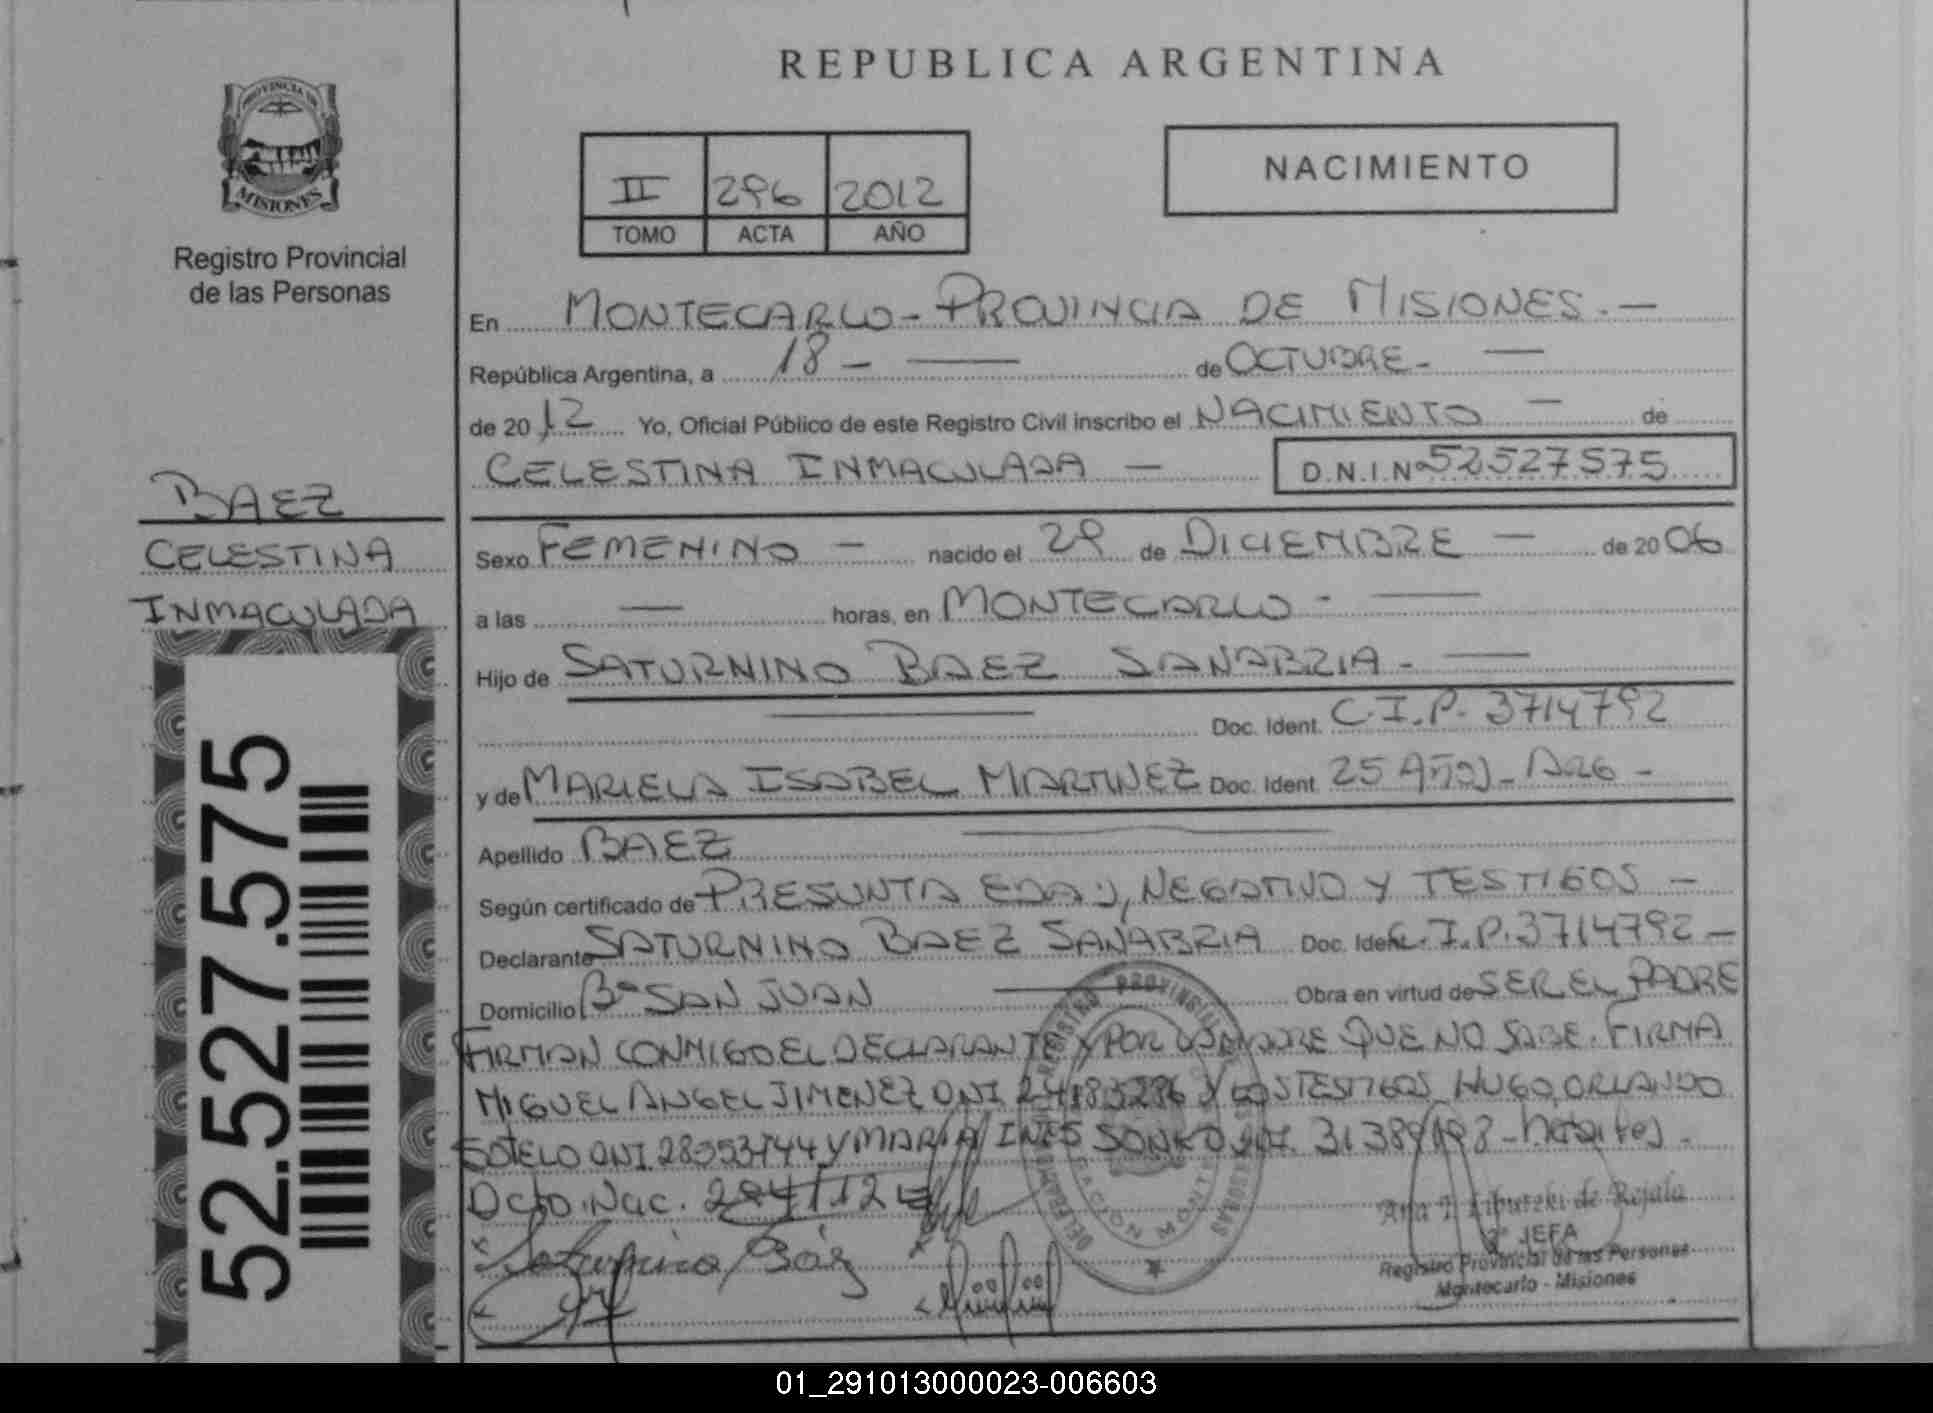 REPUBLICA ARGENTINA
PROVINCIA DE
MISIONES
Registro Provincial
de las Personas
II 296 2012
TOMO ACTA AÑO
NACIMIENTO
En MONTECARLO - PROVINCIA DE MISIONES. —
República Argentina, a 18 - — de OCTUBRE - —
de 2012 Yo, Oficial Público de este Registro Civil inscribo el NACIMIENTO — de
CELESTINA INMACULADA — D.N.I.Nº 52527575
BAEZ
CELESTINA
INMACULADA
52.527.575
Sexo FEMENINO — nacido el 29 de DICIEMBRE — de 2006
a las — horas, en MONTECARLO - —
Hijo de SATURNINO BAEZ SANABRIA - —
— Doc. Ident. C.I.P. 3714792
y de MARIELA ISABEL MARTINEZ Doc. Ident. 25 AÑOS - ARG -
Apellido BAEZ —
Según certificado de PRESUNTA EDAD, NEGATIVO Y TESTIGOS —
Declarante SATURNINO BAEZ SANABRIA Doc. Ident. C.I.P. 3714792 —
Domicilio Bº SAN JUAN — Obra en virtud de SER EL PADRE
FIRMAN CONMIGO EL DECLARANTE Y POR LA MADRE QUE NO SABE FIRMA
MIGUEL ANGEL JIMENEZ DNI Y LOS TESTIGOS HUGO ORLANDO
SOTELO DNI Y MARIA INES
Dcto. Nac.
Saturnino Báez
Ana de Rejala
2º JEFA
Registro Provincial de las Personas
Montecarlo - Misiones
01_291013000023-006603